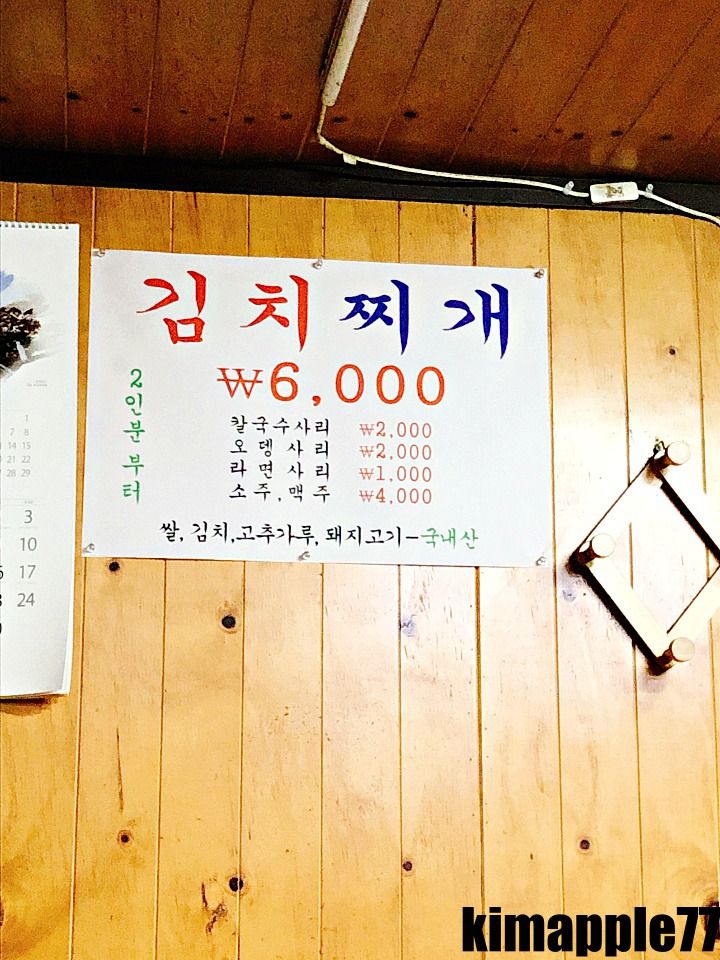 김치찌개
₩6,000
2인분 부터
칼국수사리 ₩2,000
오뎅사리 ₩2,000
라면사리 ₩1,000
소주, 맥주 ₩4,000
쌀, 김치, 고추가루, 돼지고기-국내산
1
7 8
14 15
21 22
28 29
3
10
17
24
kimapple77